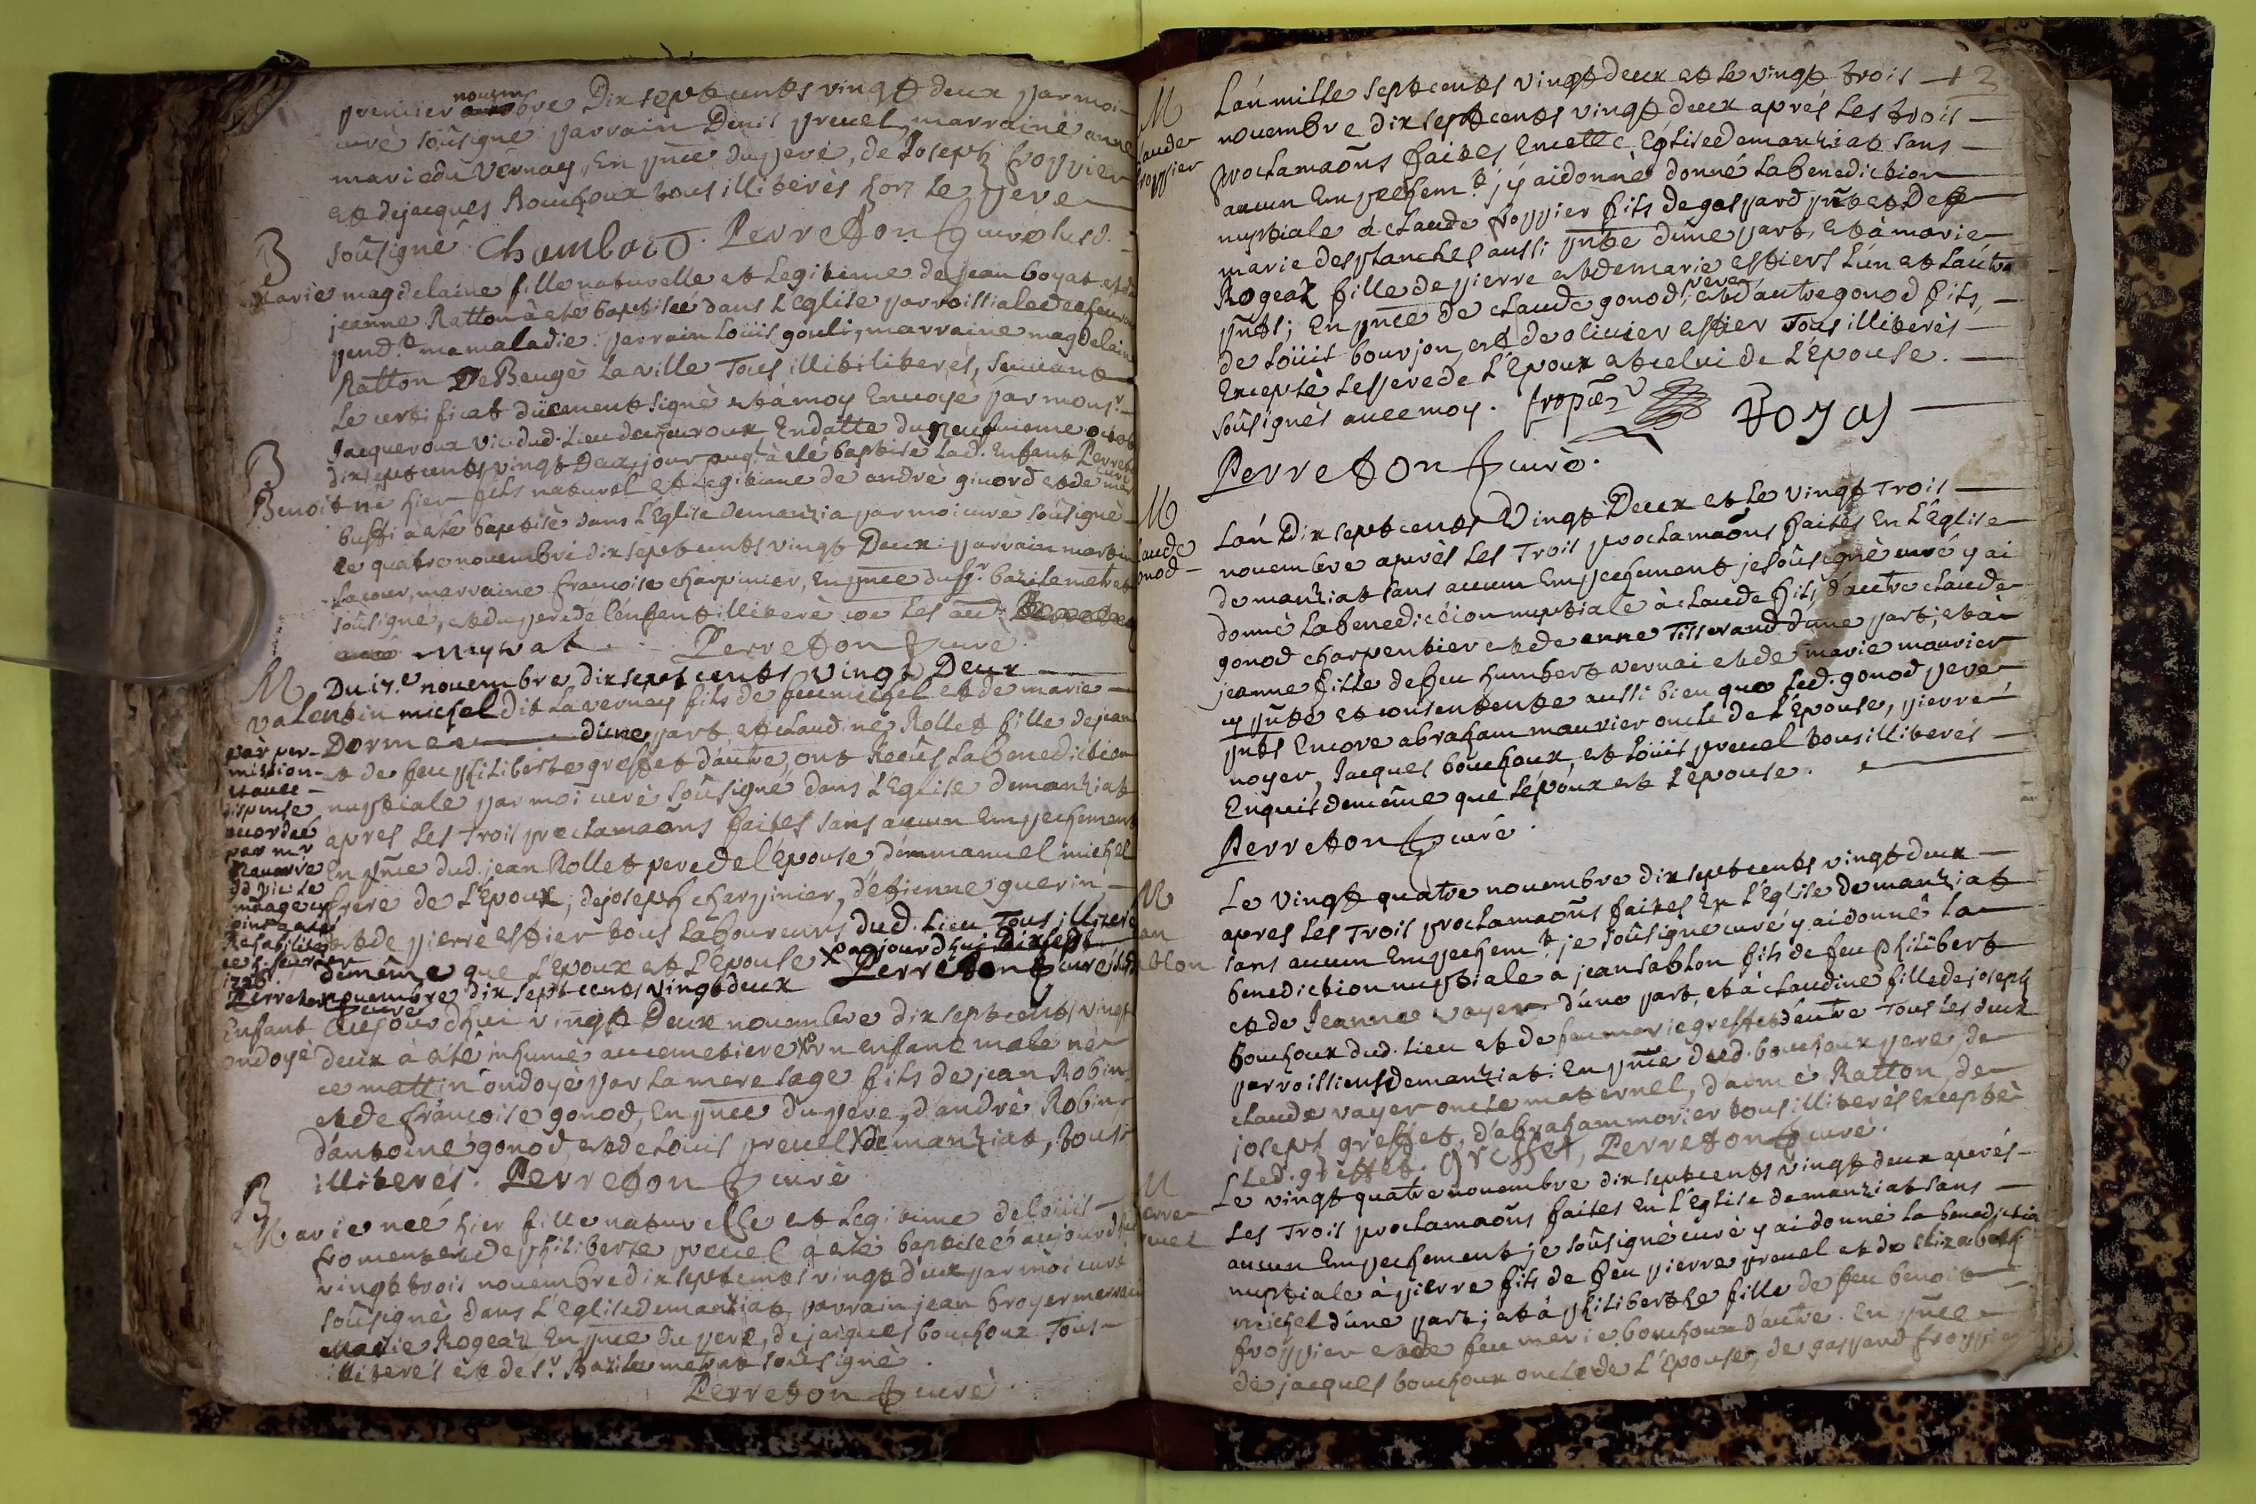 premier novembre Dix sept cents vingt deux par moi
curé soûsigné parrain Denis preuel, marraine anne
marie du Vernay, En pnce du pere, de Joseph froppier
et de jacques Bouchoux tous illiterés hors le pere
soûsigné Chambard. Perreton curé
B
Marie magdelaine fille naturelle et Legitime de jean boyat et de
jeanne Ratton à eté baptisée dans L'Eglise parroissiale de
pend.t ma maladie: parrain Loüis gouli, marraine magdelaine
Ratton De Beugé La ville Tous illiterés, suivant
Le certificat düement signé et à moy Envoyé par mons.r
Jacqueroux vic. dud. Lieu de Endatte du neufvieme octob
dix sept cents vingt Deux, jour auq.l à eté baptisé Lad. Enfant Perreton
curé
B
Benoit né hier fils naturel et Legitime de andré ginord et de
buffi à eté baptisé dans L'Eglise demanzia par moi curé soûsigné
Le quatre novembre dix sept cents vingt Deux: parrain martin
Lacour, marraine francoise charpinier, En pnce du sr. bazile metrat
soûsigné, et du pere de l'enfant illiteré
metrat Perreton curé
M
Du 17.e novembre dix sept cents vingt Deux
valentin michel dit Lavernay fils de feu michel et de marie
Dorme d'une part et claudine Rollet fille de jean
et de feu philiberte greffet d'autre, ont Receûs La benediction
nuptiale par moi curé soûsigné dans L'Eglise demanziat
apres Les Trois proclamaõns faites sans aucun Empechement
En pñce dud. jean Rollet pere de l'Epouse d'emmanuel michel
frere de L'Epoux, de joseph charpinier, d'etienne guerin
et de pierre estier tous Laboureurs dud. Lieu Tous illiteré
de même que L'Epoux et L'Epouse X aujourdhui Dix sept
novembre dix sept cents vingt deux Perreton curé
par per-
mission
et avec
dispense
accordée
par mr
Perreton
curé
Enfant
ondoyé
Aujourdhui vingt Deux novembre dix sept cents vingt
deux à eté inhumé au cemetiere X un enfant male né
ce mattin ondoyé par La mere sage fils de jean Robin
et de francoise gonod, En pnce du pere, d'andré Robin
d'antoine gonod et de Loüis preuel X de manziat, tous
illiterés. Perreton curé
B
Marie neé hier fille naturelle et Legitime de Loüis
froment et de philiberte preuel à eté baptisée aujourdhui
vingt trois novembre dix sept cents vingt deux par moi curé
soûsigné dans L'Eglise demanziat, parrain jean broyer marraine
Marie Rogeaz En pnce du pere, de jacques bouchoux Tous
illiterés et de sr. Bazile metrat soûsigné.
Perreton curé
M
claude
froppier
L'an mille sept cents vingt deux et Le vingt trois
novembre dix sept cents vingt deux aprés Les trois
proclamaõns faites En cette Eglise demanziat sans
aucun Empechem.t j'y ai donné donné La benediction
nuptiale à claude froppier fils de gaspard pñt et De
marie desplanches aussi pñte d'une part, et à marie
Rogeaz fille de pierre et de marie estiers L'un et L'autre
pñts; En pñce de claude gonod pere, et d'autre gonod fils,
de Loüis bourjon, et de olivier estier Tous illiterés
Excepté Les pere de L'Epoux et celui de L'Epouse.
soûsignés avec moy. fropier ROJAS
Perreton curé.
M
claude
gonod
L'an Dix sept cents Vingt Deux et Le vingt Trois
novembre aprés Les Trois proclamaõns faites En L'Eglise
de manziat sans aucun Empechement je soûsigné curé y ai
donné La benediction nuptiale à claude fils d'autre claude
gonod charpentier et de anne Tisserand d'une part, et à
jeanne fille de feu humbert vernai et de marie maurier
cy pñte et consentente aussi bien que Led. gonod pere
pñts Encore abraham maurier oncle de L'Epouse, pierre
noyer, Jacques bouchoux, et Loüis preuel tous illiterés
Enquis de même que L'époux et L'épouse.
Perreton curé.
M
Le vingt quatre novembre dix sept cents vingt deux
apres Les Trois proclamaõns faites En L'Eglise demanziat
sans aucun Empechem.t je soûsigné curé y ai donné La
benediction nuptiale à jean sablon fils de feu Philibert
et de Jeanne vayer d'une part, et à claudine fille de joseph
bouchoux dud. Lieu et de feu marie greffet d'autre Tous Les deux
parroissiens demanziat: En pñce dud. bouchoux pere, de
claude vayer oncle maternel, d'aimé Ratton, de
joseph greffet, d'abraham morier tous illiterés Excepté
Led. greffet. Greffet, Perreton curé.
M
pierre
preuel
Le vingt quatre novembre dix sept cents vingt deux aprés
Les Trois proclamaõns faites En L'Eglise demanziat sans
aucun Empechement je soûsigné curé y ai donné La benediction
nuptiale à pierre fils de feu pierre preuel et de Elizabeth
michel d'une part; et à philiberthe fille de feu benoit
froppier et de feu marie bouchoux d'autre. En pñce
de jacques bouchoux oncle de L'Epouse, de gaspard froppier